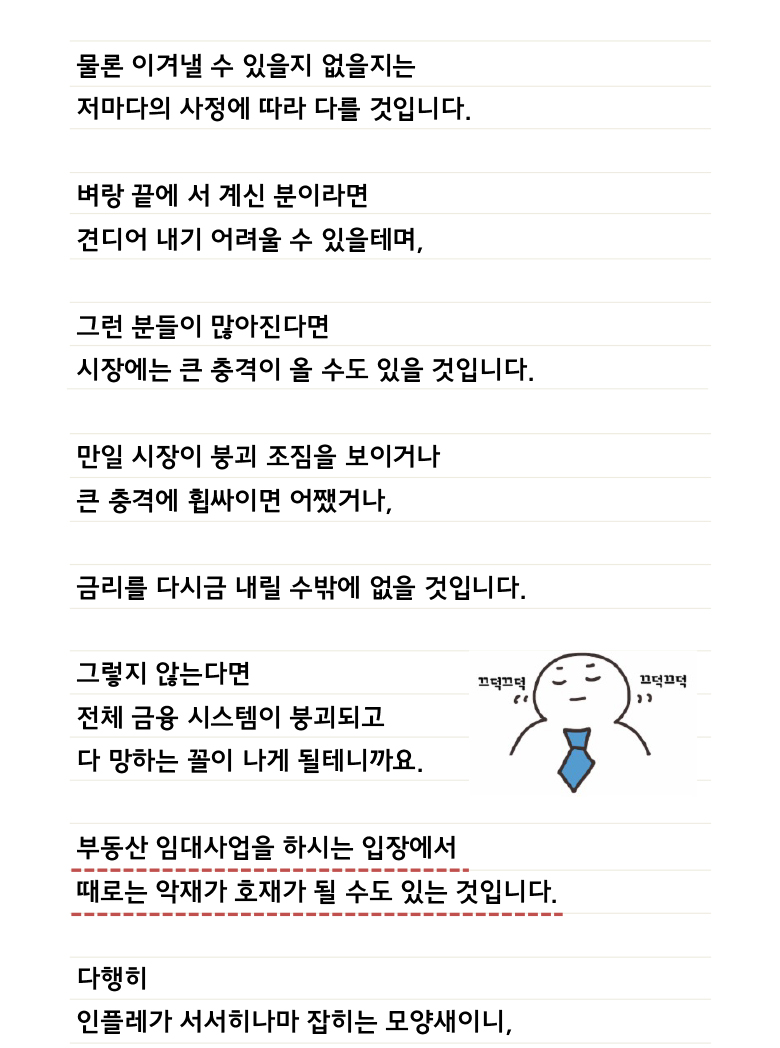 물론 이겨낼 수 있을지 없을지는
저마다의 사정에 따라 다를 것입니다.
벼랑 끝에 서 계신 분이라면
견디어 내기 어려울 수 있을테며,
그런 분들이 많아진다면
시장에는 큰 충격이 올 수도 있을 것입니다.
만일 시장이 붕괴 조짐을 보이거나
큰 충격에 휩싸이면 어쨌거나,
금리를 다시금 내릴 수밖에 없을 것입니다.
그렇지 않는다면
끄덕끄덕
끄덕끄덕
전체 금융 시스템이 붕괴되고
다 망하는 꼴이 나게 될테니까요.
부동산 임대사업을 하시는 입장에서
때로는 악재가 호재가 될 수도 있는 것입니다.
다행히
인플레가 서서히나마 잡히는 모양새이니,